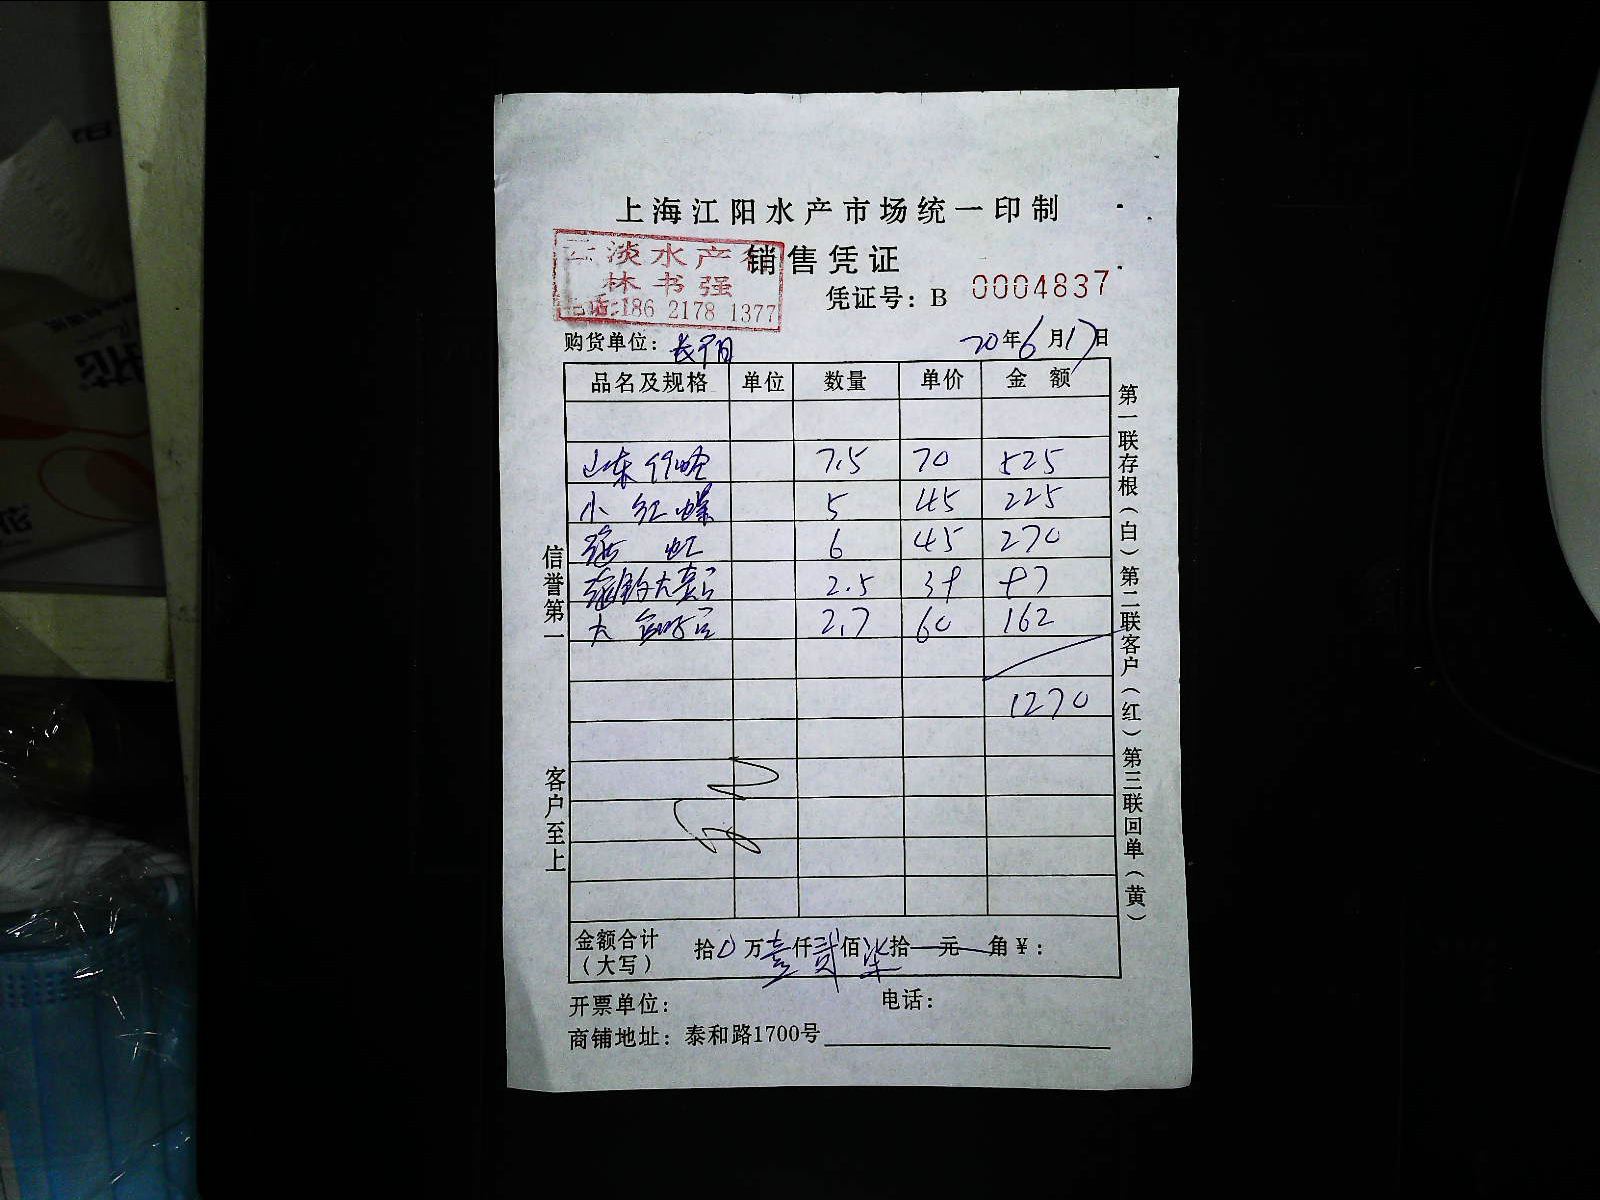 上海江阳水产市场统一印制
销售凭证
淡水产
林书强
电话:186 2178 1377
凭证号：B 0004837
购货单位：
20年6月17日
品名及规格 单位 数量 单价 金额
山东 7.5 70 525
小红螺 5 45 225
6 45 270
2.5 162
大 2.7 60 162
1270
金额合计（大写） 拾0万壹仟贰佰柒拾元角￥：
开票单位： 电话：
商铺地址：泰和路1700号
信誉第一
客户至上
第一联存根（白）第二联客户（红）第三联回单（黄）